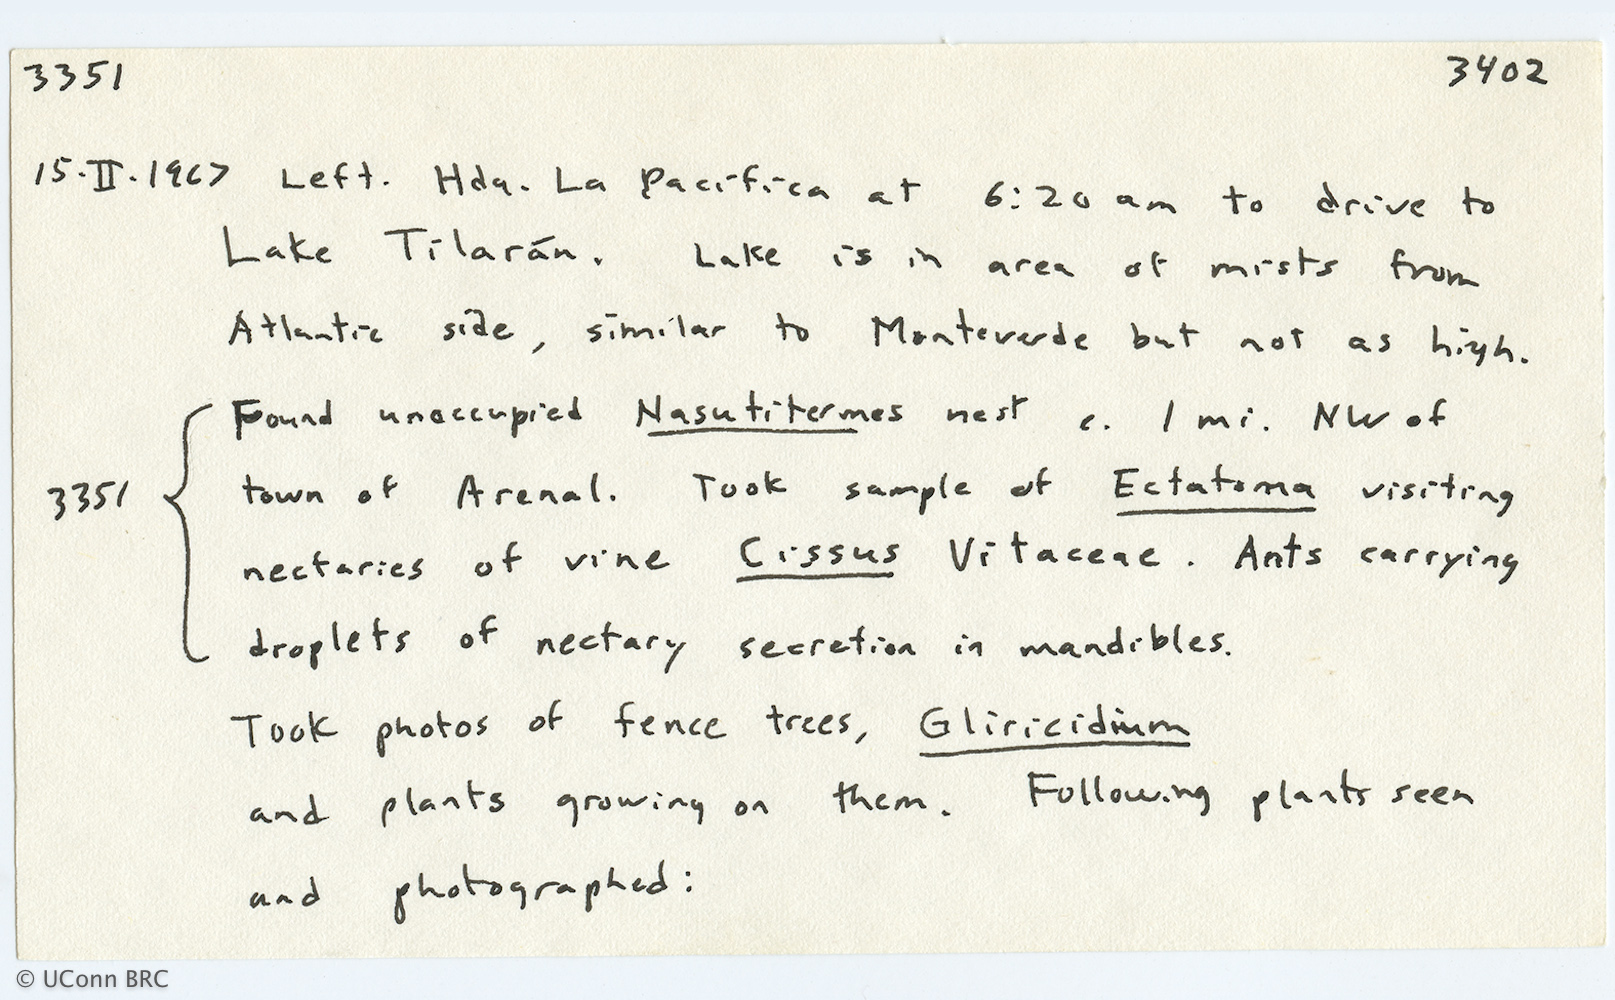 3351 3402
15.II.1967 Left. Hda. La Pacifica at 6:20 am to drive to
Lake Tilarán. Lake is in area of mists from
Atlantic side, similar to Monteverde but not as high.
Found unoccupied Nasutitermes nest c. 1 mi. NW of
3351 town of Arenal. Took sample of Ectatoma visiting
nectaries of vine Cissus Vitaceae. Ants carrying
droplets of nectary secretion in mandibles.
Took photos of fence trees, Gliricidium
and plants growing on them. Following plants seen
and photographed:
© UConn BRC